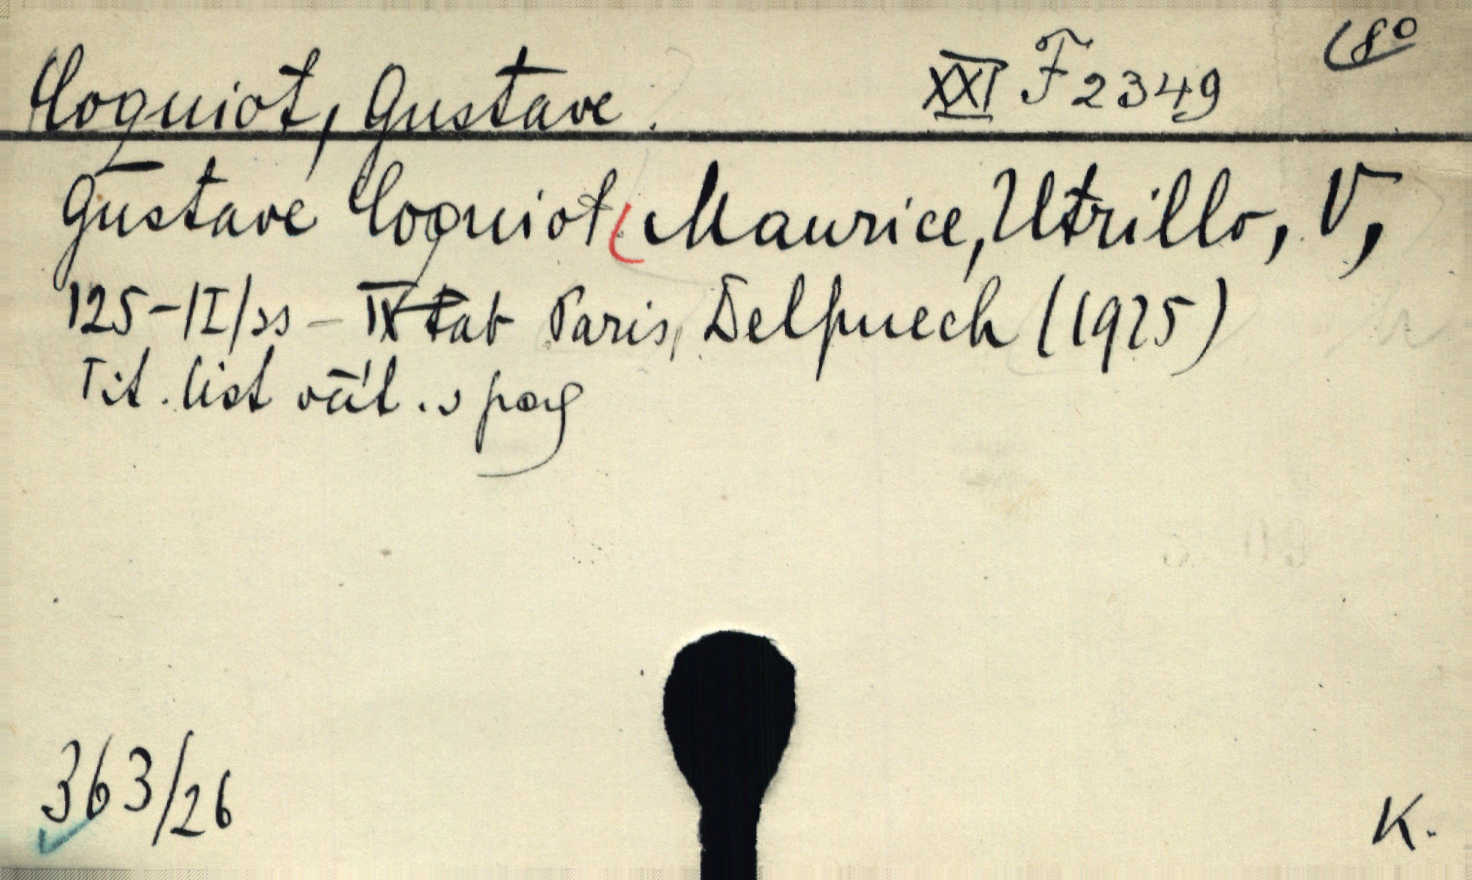 Coquiot, Gustave. XXI F 2349 (8°
Gustave Coquiot, Maurice, Utrillo, V,
125-/I/ss - IX tab Paris, Delpuech (1925)
Tit. list včít. v pag
363/26
K.